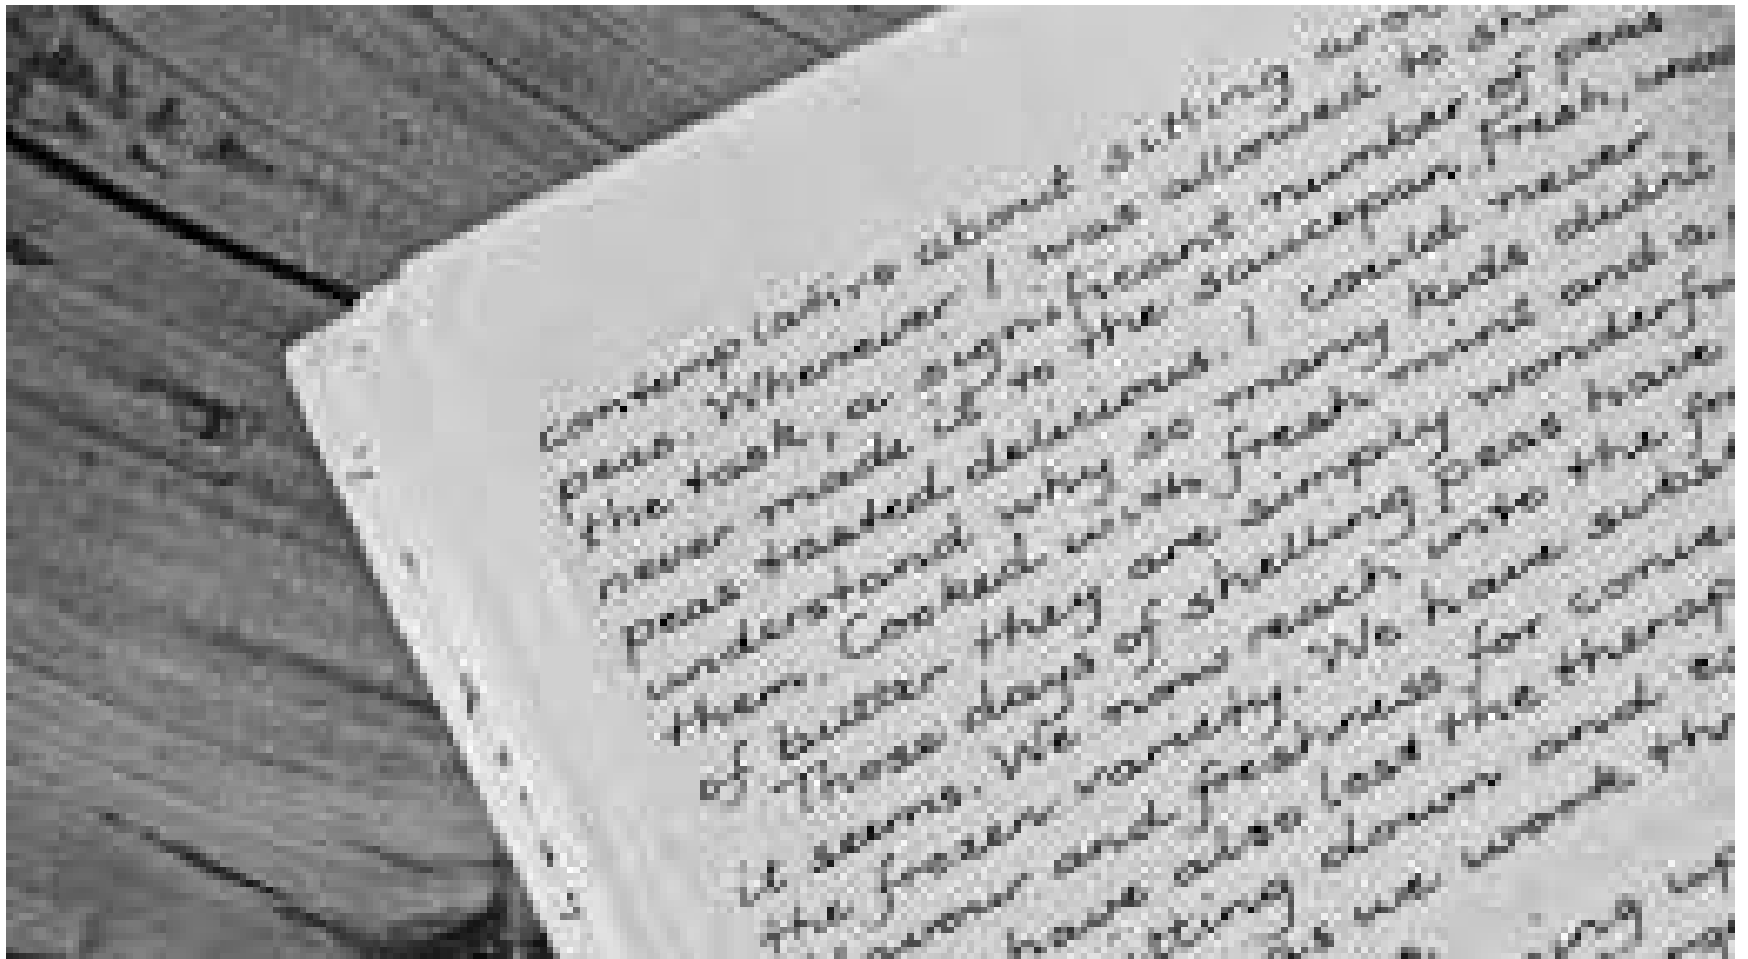 contemplative about sitting
peas. Whenever I was allowed to
the task, a significant number of peas
never made it to the saucepan. Fresh,
peas tasted delicious. I could never
understand why so many kids didn't
them. Cooked with fresh mint and a
of butter they are simply
Those days of shelling peas have
it seems. We now reach into the
the frozen variety. We have
flavour and freshness for
have also lost the
sitting down and
as we work